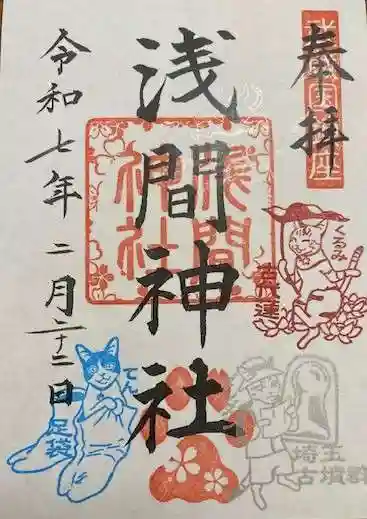 奉拝
浅間神社
令和七年二月二十二日
浅間
神社
くるみ
古代蓮
てん
足袋
埼玉
古墳群